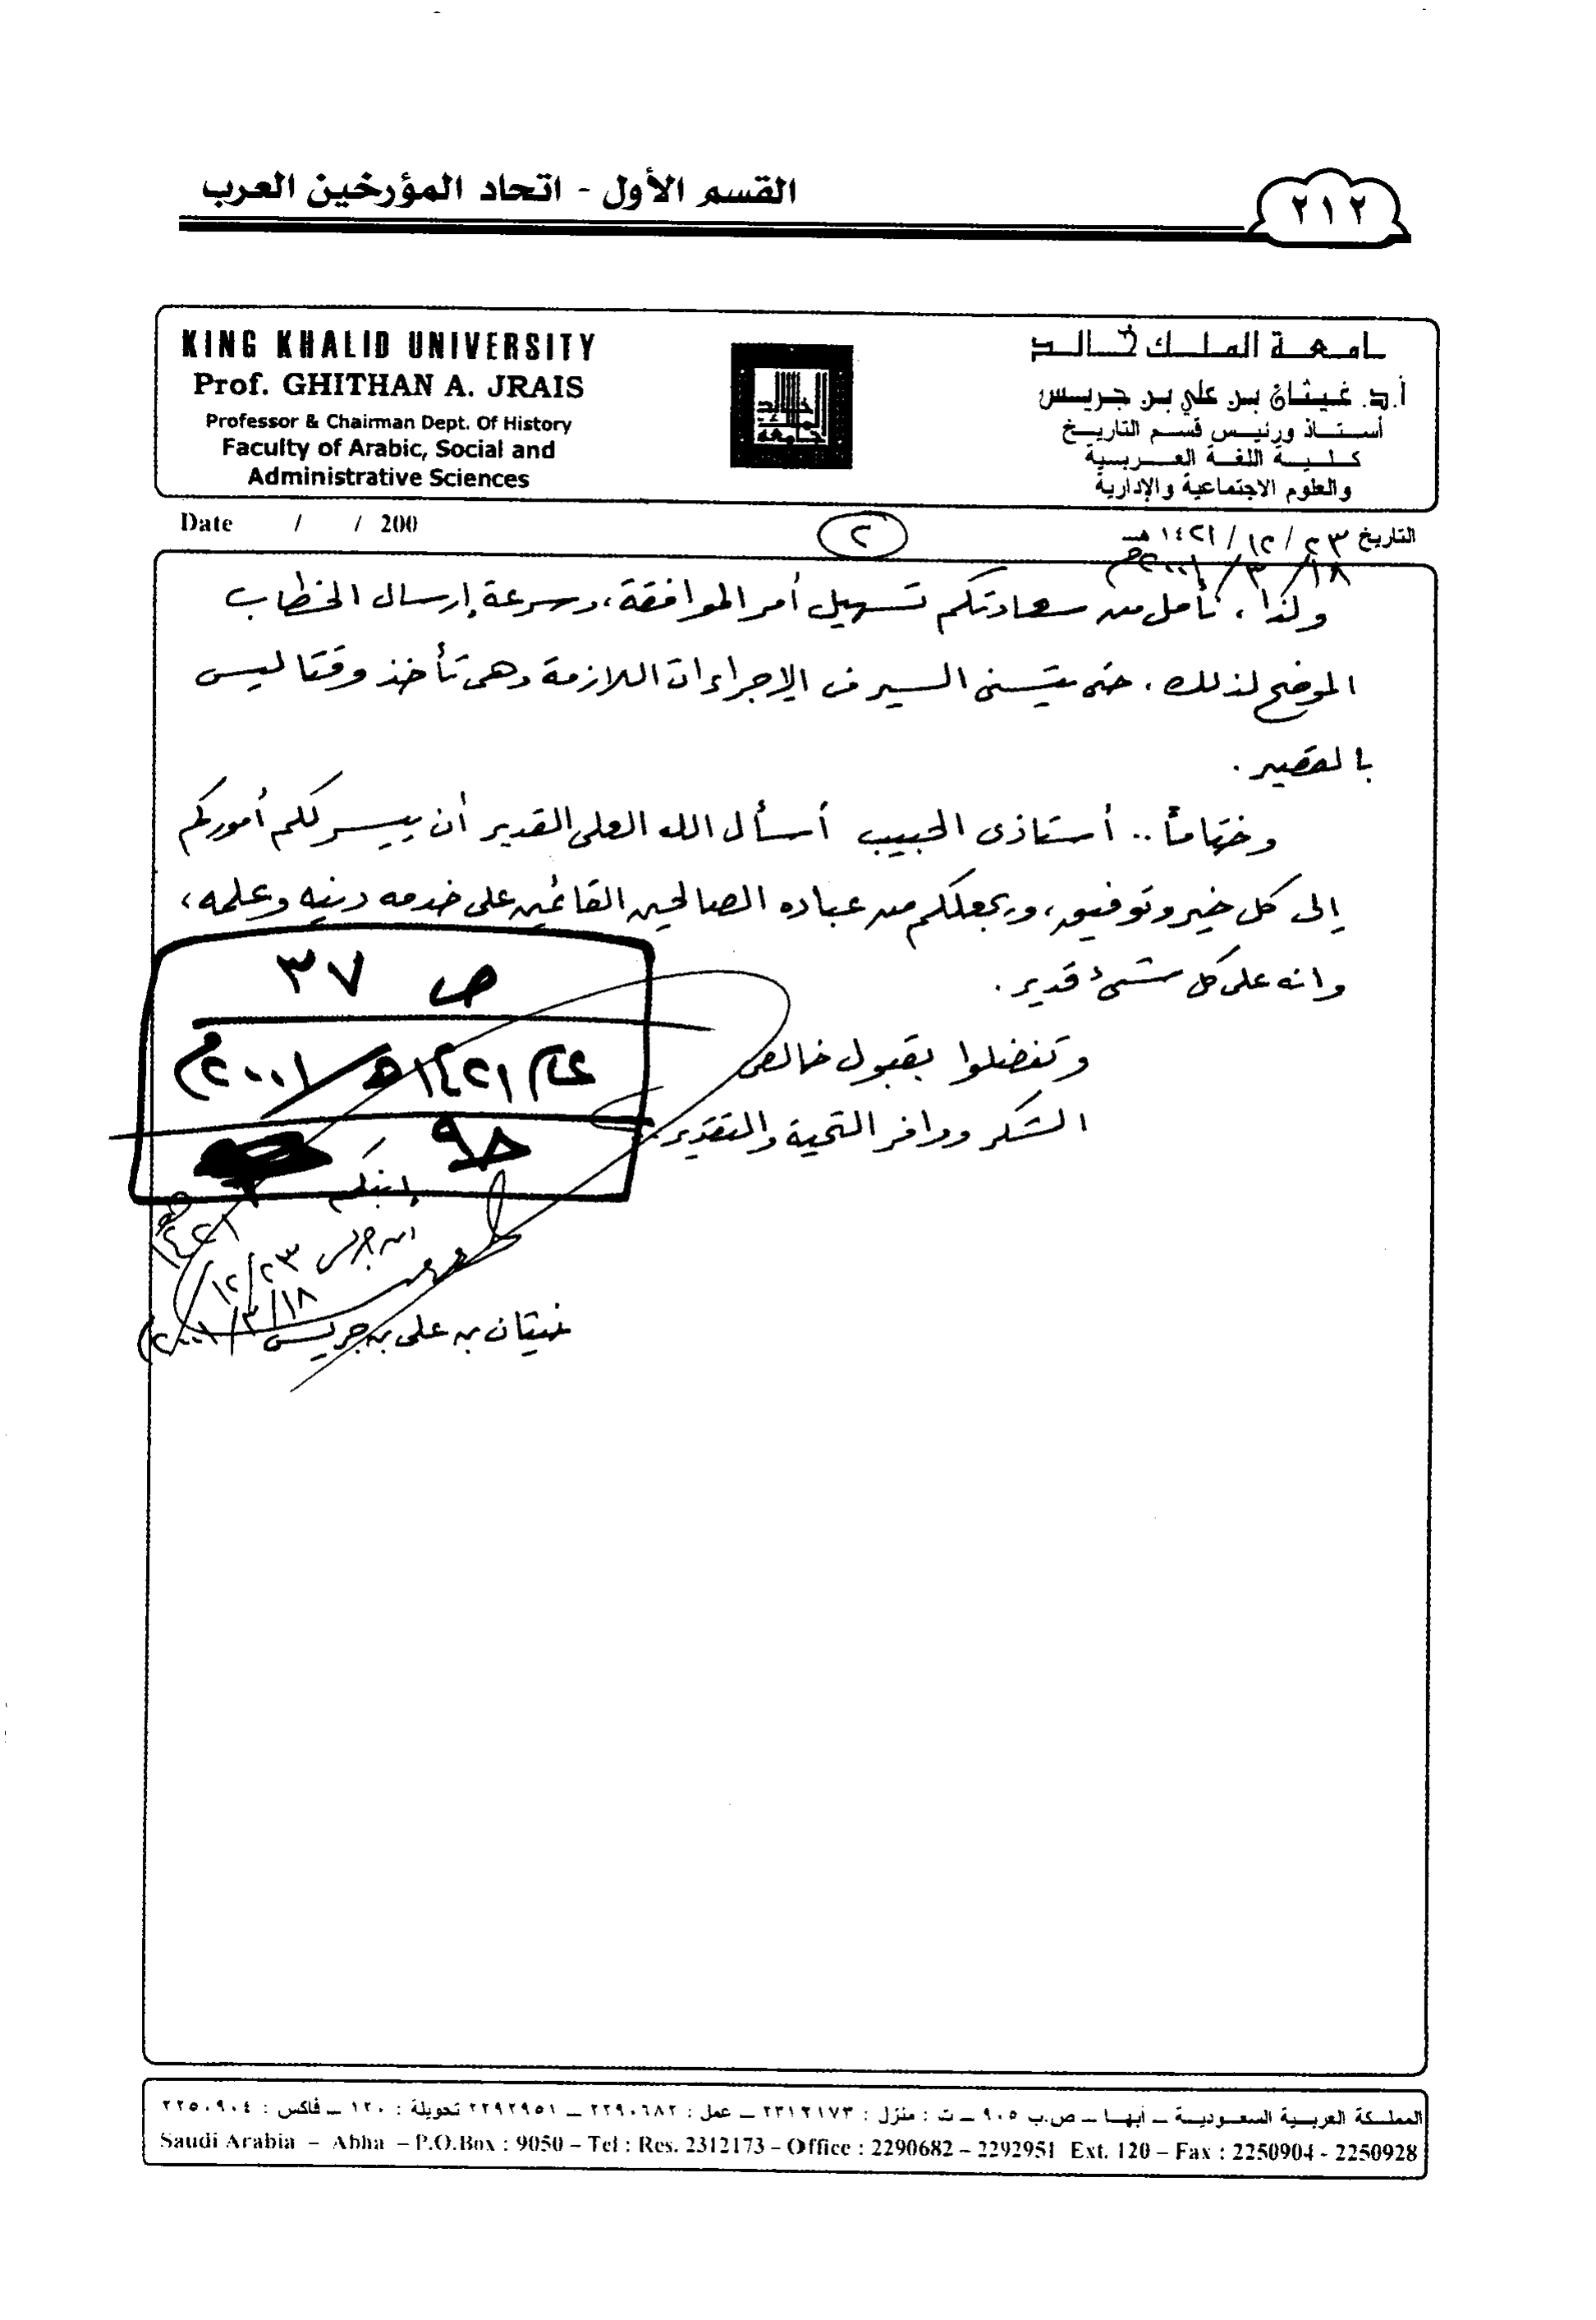 القسم الأول - اتحاد المؤرخين العرب
٢١٢
KING KHALID UNIVERSITY
Prof. GHITHAN A. JRAIS
Professor & Chairman Dept. Of History
Faculty of Arabic, Social and
Administrative Sciences
جامعة الملك خالد
أ.د. غيثان بن علي بن جريس
أستاذ ورئيس قسم التاريخ
كلية اللغة العربية
والعلوم الاجتماعية والإدارية
Date / / 200
٢
التاريخ ٢٣ / ١٢ / ١٤٢١ هـ
١٨ / ٣ / ٢٠٠١م
ولذا، نأمل من سعادتكم تسهيل أمر الموافقة، وسرعة إرسال الخطاب
الموضح لذلك، حتى يتسنى السير في الإجراءات اللازمة وهي تأخذ وقتا ليس
بالقصير.
وختاماً.. أستاذي الحبيب أسأل الله العلي القدير أن ييسر لكم أموركم
إلى كل خير وتوفيق، ويجعلكم من عباده الصالحين القائمين على خدمة دينه وعلمه،
وانه على كل شيء قدير.
ص ٣٧
عام ١٤٢١هـ/٢٠٠١م
وتفضلوا بقبول خالص
الشكر ووافر التحية والتقدير.
إبنكم
ابن جريس ٢٣/١٢/١٤٢١هـ
١٨/٣/٢٠٠١م
غيثان بن علي بن جريس
المملكة العربية السعودية – أبها – ص.ب ٩٠٥ – ت : منزل : ٢٣١٢١٧٣ – عمل : ٢٢٩٠٦٨٢ – ٢٢٩٢٩٥١ تحويلة : ١٢٠ – فاكس : ٢٢٥٠٩٠٤
Saudi Arabia – Abha – P.O.Box : 9050 – Tel : Res. 2312173 – Office : 2290682 – 2292951 Ext. 120 – Fax : 2250904 - 2250928